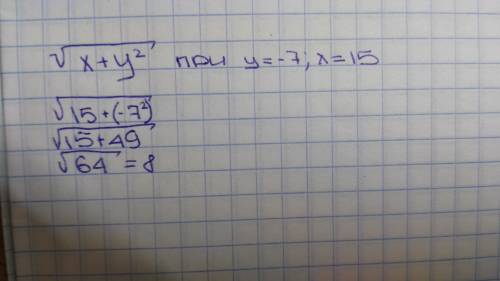 √x+y² при y=-7; x=15
√15+(-7²)
√15+49
√64 = 8